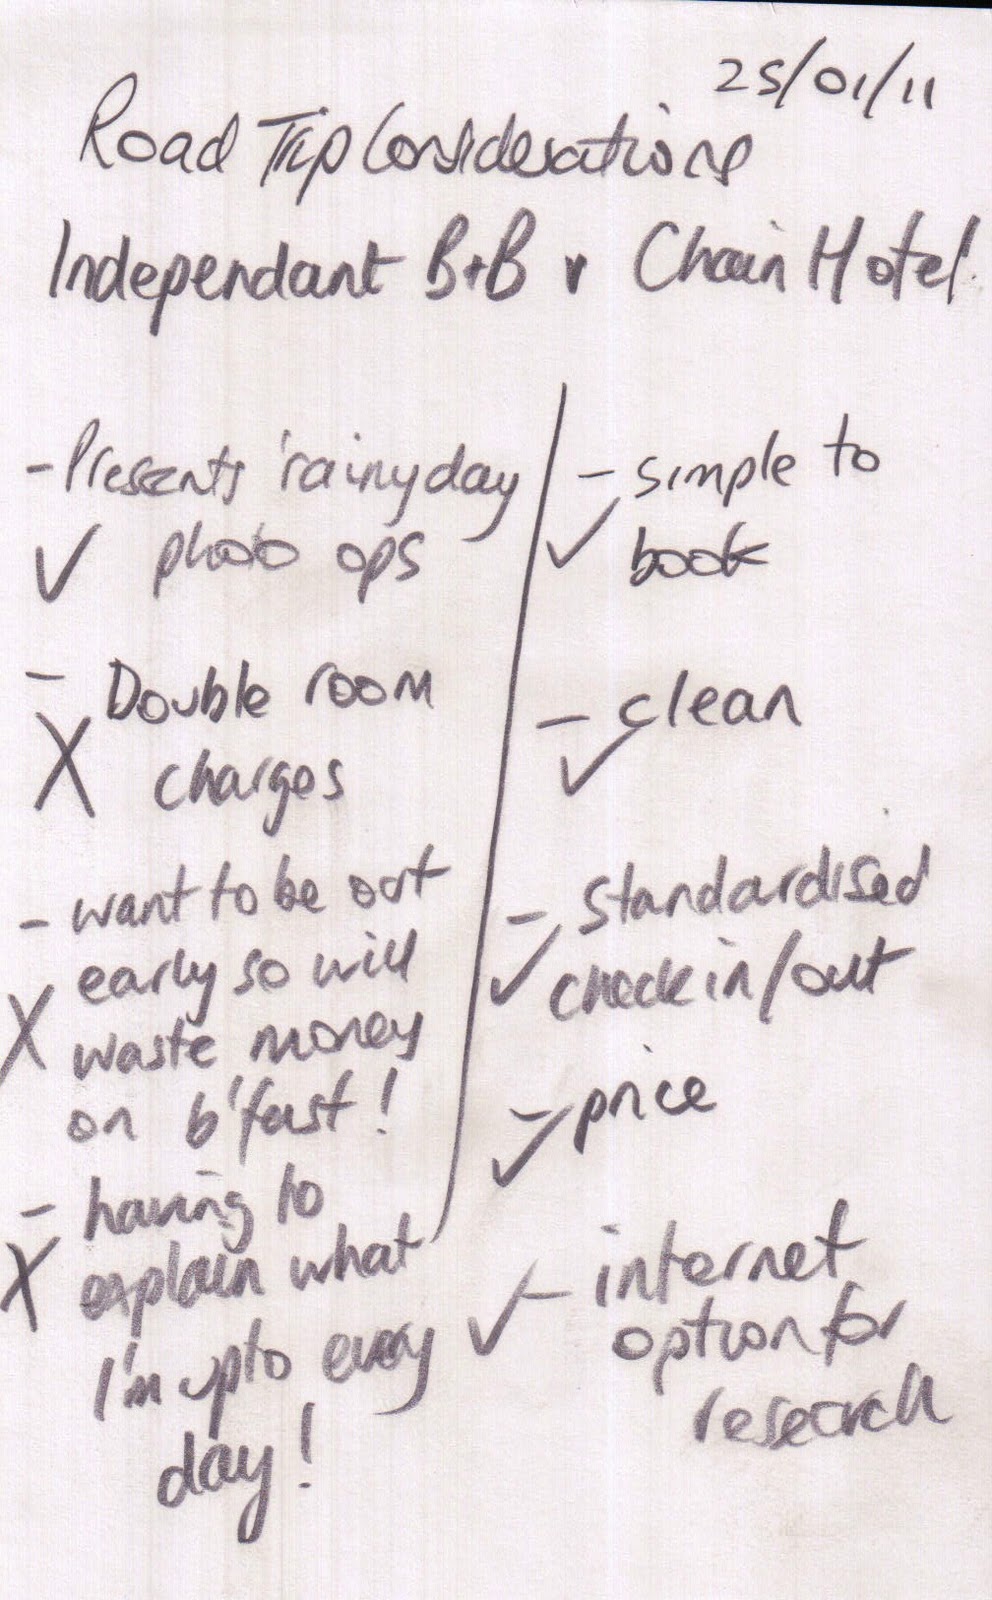 25/01/11
Road Trip Considerations
Independant B+B v Chain Hotel.
- Presents 'rainy day
✓ photo ops
- Double room
X charges
- want to be out
early so will
X waste money
on b'fast!
- having to
X explain what
I'm up to every
day!
- simple to
✓ book
- clean
✓
- standardised
✓ check in/out
- price
✓
✓ - internet
option for
research